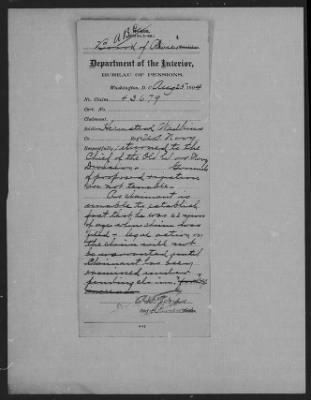 Board of Review
Department of the Interior,
BUREAU OF PENSIONS,
Washington, D. C. Aug 25, 1904
No. Claim 43679
Cert. No.
Claimant:
Soldier:
Co. Reg't U.S. Navy
Respectfully returned to the
Chief of the Old War & Navy
Division. Grounds
of proposed rejection
are not tenable.
Our claimant is
unable to establish
fact that he was 62 years
of age when claim was
filed - legal action in
the claim will not
be warranted until
Claimant has been
examined under
pending claim